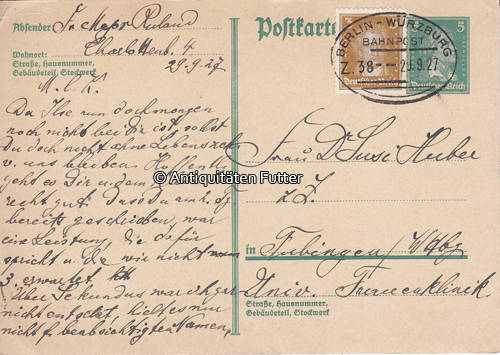 Absender: Fr. Major Ruland
Wohnort: Charlottenb. 4
Straße, Hausnummer,
Gebäudeteil, Stockwerk
29.9.27
M. l. K.
Da Ihr nun doch morgen
noch nicht bei die ist, sollst
Du doch nicht ohne Lebenszeich
v. uns bleiben. Hoffentl.
geht es Dir u. dem
recht gut. Dass Du am
bereits geschrieben, war
eine Leistung, die dafür
spricht u. die wir nicht
erwartet
Über Sekundus war ich gar
nicht entgeistet, hielt es nur
nicht f. beabsichtigten Namen,
Postkarte
BERLIN - WÜRZBURG
BAHNPOST
Z. 38 29.9.27
5
Deutsches Reich
Frau Dr Susi Huber
z. Z.
in Tübingen / Wttbg
Univ. Frauenklinik
Straße, Hausnummer,
Gebäudeteil, Stockwerk
© Antiquitäten Futter